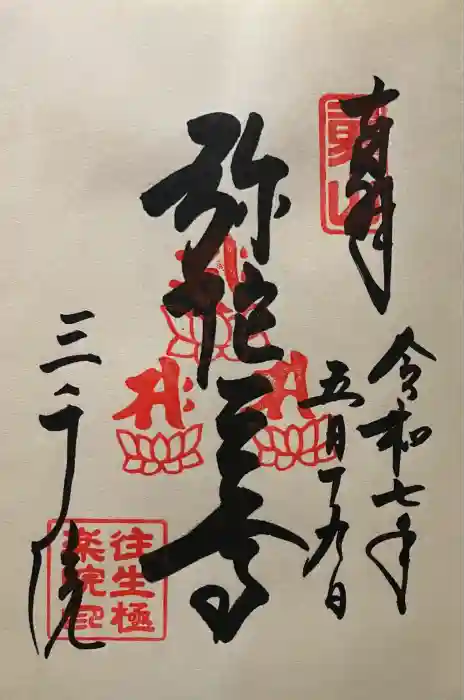 奉拝
令和七年
五月十九日
弥陀三尊
三千院
往生極
楽院印